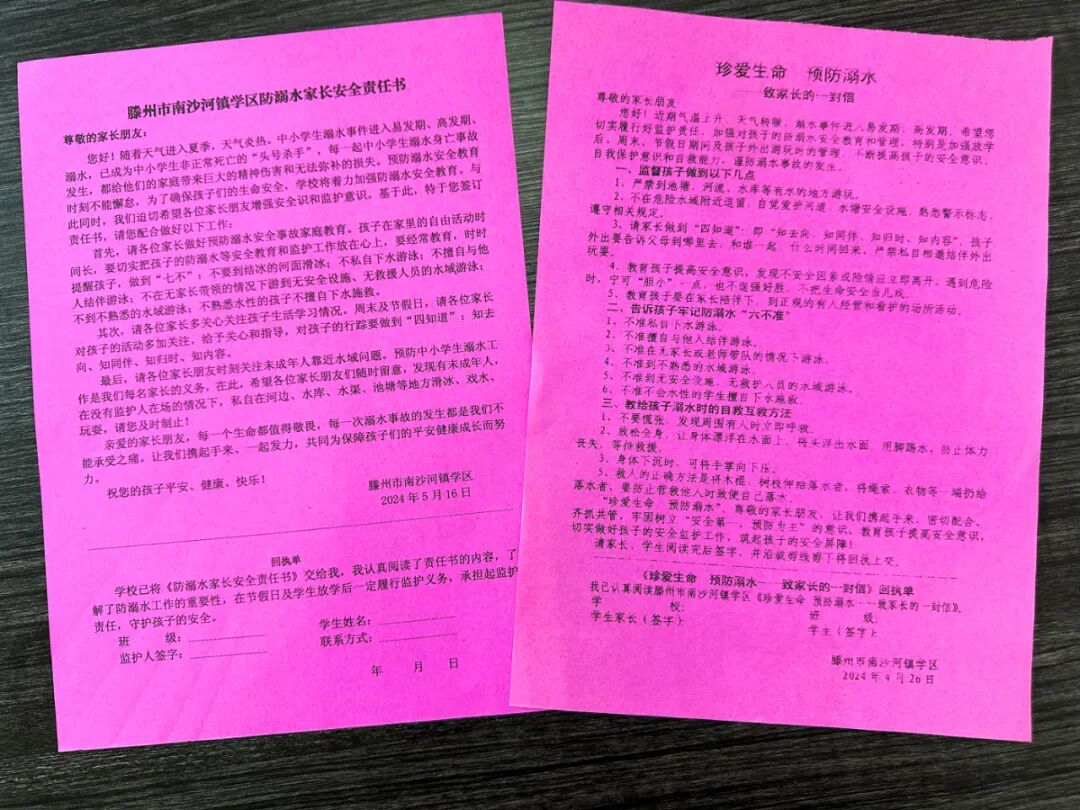 滕州市南沙河镇学区防溺水家长安全责任书
尊敬的家长朋友：
您好！随着天气进入夏季，天气炎热。中小学生溺水事件进入易发期、高发期，
溺水，已成为中小学生非正常死亡的“头号杀手”，每一起中小学生溺水身亡事故
发生，都给他们的家庭带来巨大的精神伤害和无法弥补的损失。预防溺水安全教育
时刻不能懈怠，为了确保孩子们的生命安全，学校将着力加强防溺水安全教育。与
此同时，我们迫切希望各位家长朋友增强安全识和监护意识。基于此，特于您签订
责任书，请您配合做好以下工作：
首先，请各位家长做好预防溺水安全事故家庭教育。孩子在家里的自由活动时
间长，要切实把孩子的防溺水等安全教育和监护工作放在心上，要经常教育，时时
提醒孩子，做到“七不”：不要到结冰的河面滑冰；不私自下水游泳；不擅自与他
人结伴游泳；不在无家长带领的情况下游到无安全设施、无救援人员的水域游泳；
不到不熟悉的水域游泳；不熟悉水性的孩子不擅自下水施救。
其次，请各位家长多关心关注孩子生活学习情况。周末及节假日，请各位家长
对孩子的活动多加关注，给予关心和指导，对孩子的行踪要做到“四知道”：知去
向、知同伴、知归时、知内容。
最后，请各位家长朋友时刻关注未成年人靠近水域问题。预防中小学生溺水工
作是我们每名家长的义务，在此，希望各位家长朋友们随时留意，发现有未成年人，
在没有监护人在场的情况下，私自在河边、水库、水渠、池塘等地方滑冰、戏水、
玩耍，请您及时制止！
亲爱的家长朋友，每一个生命都值得敬畏，每一次溺水事故的发生都是我们不
能承受之痛。让我们携起手来、一起发力，共同为保障孩子们的平安健康成长而努
力。
祝您的孩子平安、健康、快乐！
滕州市南沙河镇学区
2024年5月16日
回执单
学校已将《防溺水家长安全责任书》交给我，我认真阅读了责任书的内容，了
解了防溺水工作的重要性，在节假日及学生放学后一定履行监护义务，承担起监护
责任，守护孩子的安全。
班 级： 学生姓名：
监护人签字： 联系方式：
年 月 日
珍爱生命 预防溺水
——致家长的一封信
尊敬的家长朋友
您好！近期气温上升、天气转暖，溺水事件进入易发期、高发期，希望您
切实履行好监护责任，加强对孩子的防溺水安全教育和管理，特别是加强放学
后、周末、节假日期间及孩子外出游玩时的管理，不断提高孩子的安全意识、
自我保护意识和自救能力，谨防溺水事故的发生。
一、监督孩子做到以下几点
1、严禁到池塘，河流，水库等有水的地方游玩。
2、不在危险水域附近逗留，自觉爱护河道、水塘安全设施，熟悉警示标志，
遵守相关规定。
3、请家长做到“四知道”：即“知去向、知同伴、知归时、知内容”，孩子
外出要告诉父母到哪里去，和谁一起，什么时间回来，严禁私自相邀结伴外出
玩耍。
4、教育孩子提高安全意识，发现不安全因素或险情应立即离开，遇到危险
时，宁可“胆小”一点，也不逞强好胜，不把生命安全当儿戏。
5、教育孩子要在家长陪伴下，到正规的有人经营和看护的场所活动。
二、告诉孩子牢记防溺水“六不准”
1、不准私自下水游泳。
2、不准擅自与他人结伴游泳。
3、不准在无家长或老师带队的情况下游泳。
4、不准到不熟悉的水域游泳。
5、不准到无安全设施、无救护人员的水域游泳。
6、不准不会水性的学生擅自下水施救。
三、教给孩子溺水时的自救互救方法
1、不要慌张，发现周围有人时立即呼救。
2、放松全身，让身体漂浮在水面上，将头浮出水面，用脚踢水，防止体力
丧失，等待救援。
3、身体下沉时，可将手掌向下压。
5、救人的正确方法是将木棍、树枝伸给落水者，将绳索、衣物等一端扔给
落水者，要防止营救他人时致使自己落水。
“珍爱生命，预防溺水”，尊敬的家长朋友，让我们携起手来，密切配合，
齐抓共管，牢固树立“安全第一，预防为主”的意识，教育孩子提高安全意识，
切实做好孩子的安全监护工作，筑起孩子的安全屏障！
请家长、学生阅读完后签字，并沿裁剪线剪下将回执上交。
《珍爱生命 预防溺水——致家长的一封信》回执单
我已认真阅读滕州市南沙河镇学区《珍爱生命 预防溺水——致家长的一封信》。
学 校： 班 级：
学生家长（签字）： 学生（签字）：
滕州市南沙河镇学区
2024年4月26日